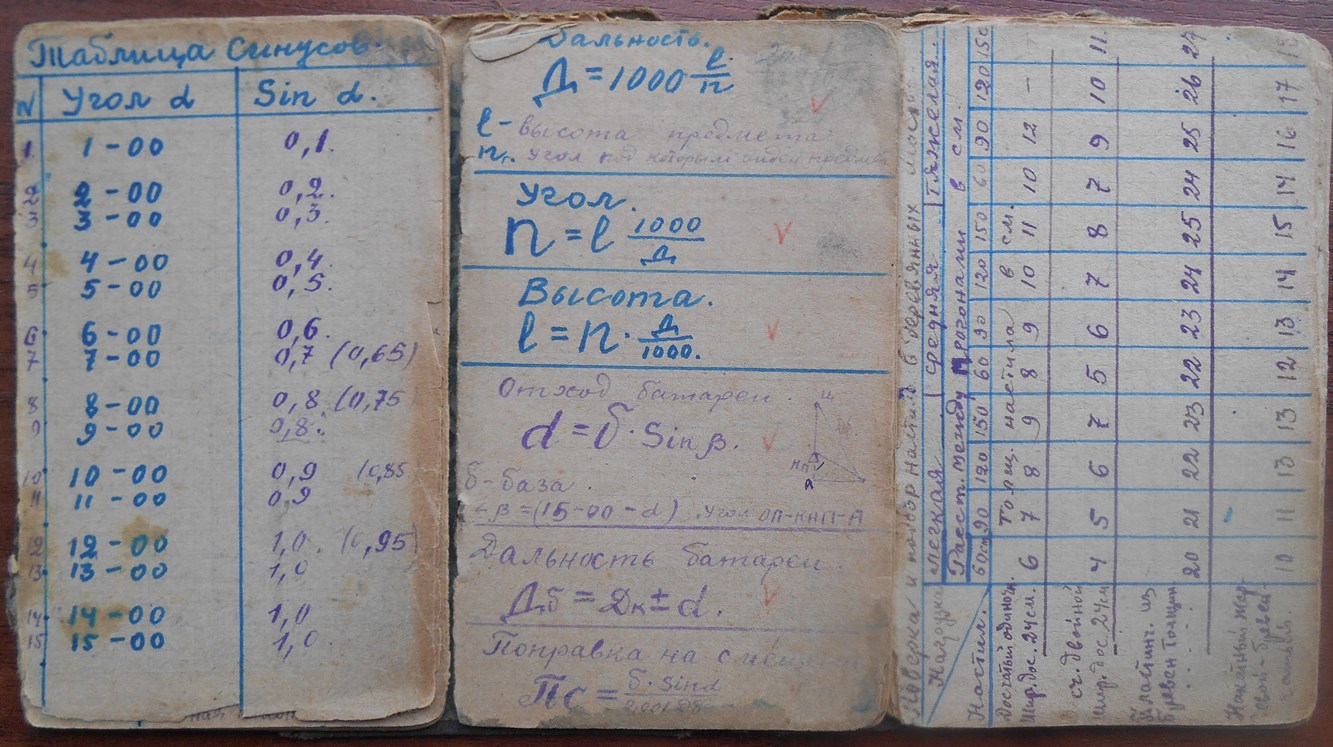 Таблица синусов.
N Угол α Sin α.
1. 1-00 0,1.
2 2-00 0,2.
3 3-00 0,3.
4 4-00 0,4.
5 5-00 0,5.
6 6-00 0,6.
7 7-00 0,7 (0,65)
8 8-00 0,8 (0,75
9 9-00 0,8.
10 10-00 0,9 (0,85
11 11-00 0,9
12 12-00 1,0. (0,95)
13 13-00 1,0
14 14-00 1,0
15 15-00 1,0
Дальность.
Д = 1000 l/n
l - высота предмета
n. угол под которым виден
Угол.
n = l 1000/Д
Высота.
l = n · Д/1000.
Отход батареи.
d = б · Sin β.
б - база.
β = (15-00 - α) угол ОП-КНП-А
Дальность батареи
Дб = Дк ± d.
Поправка на
ПС = б · Sin α
Поверка и настила в деревянных
Нагрузка легкая средняя тяжелая
Настил. Расст. между прогонами в см.
60см 90 120 150 60 90 120 150 60 90 120 150
Толщ. настила в см.
Досчатый одиночн.
Шир. дос. 24 см. 6 7 8 9 8 9 10 11 10 12 -
сч. двойной
Шир. дос. 24 см 4 5 6 7 5 6 7 8 7 9 10 11
Пластин. из
бревен толщин 20 21 22 23 22 23 24 25 24 25 26 27
Накатный жер-
10 11 13 13 12 13 14 15 14 16 17